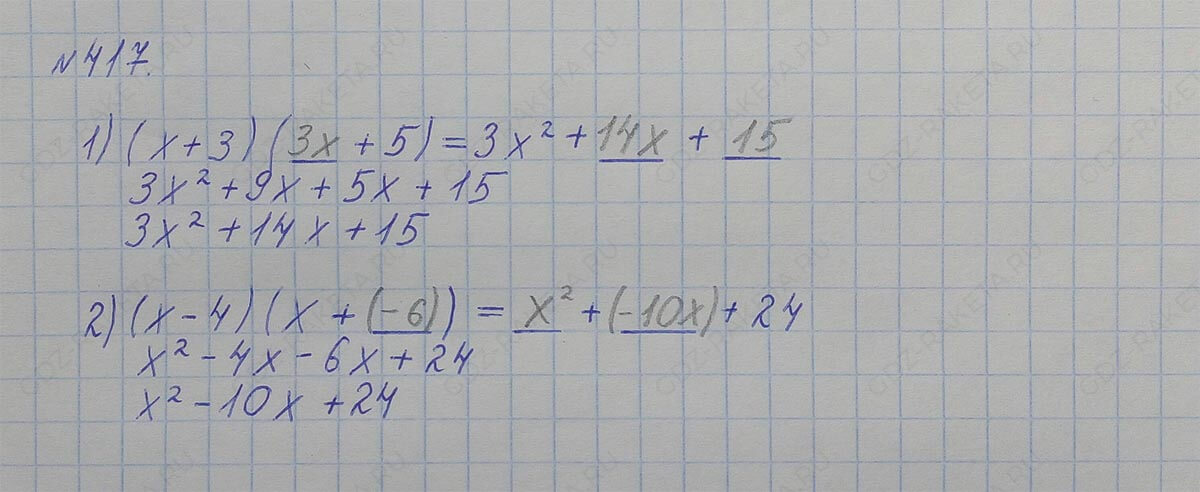 №417.
1) (x+3)(3x+5)=3x²+14x+15
3x²+9x+5x+15
3x²+14x+15
2) (x-4)(x+(-6))=x²+(-10x)+24
x²-4x-6x+24
x²-10x+24